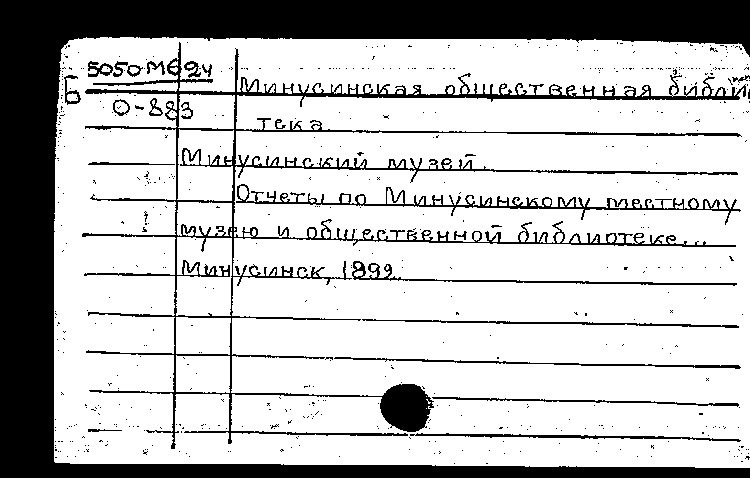 Б 5050-МБ24
О-883
Минусинская общественная библи
тека.
Минусинский музей.
Отчеты по Минусинскому местному
музею и общественной библиотеке...
Минусинск, 1899.